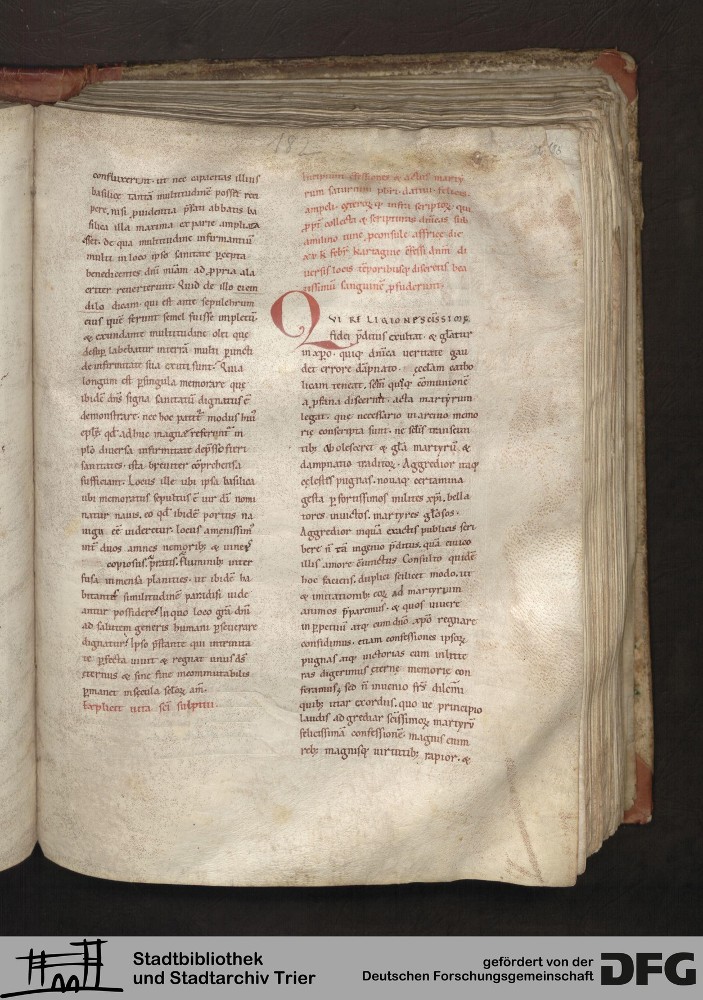 confluxerunt. ut nec capacitas illius
basilicę tantā multitudinē posset reci
pere, nisi ꝓuidentia p̄fati abbatis ba
silica illa maxima ex parte ampliata
eēt. de qua multitudine infirmantiū
multi in loco ipso sanitate ꝑcepta
benedicentes dn̄m in suam ad ꝓpria ala
criter reuerterunt. Quid de illo etiam
dolio dicam. qui est ante sepulchrum
eius que ferunt semel fuisse impletū
& exundante multitudine olei que
desup labebatur in terrā multi ꝑuncti
de infirmitate sua exuti sunt. Quia
longum est ꝑ singula memorare que
ibidē dn̄s signa sanitatū dignatus ē
demonstrare. nec hoc patit᷒ modus hui᷒
qd adhuc magna referunt᷒ in
diuersa infirmitate fieri
sanitates. ista breuiter cōp̄rehensa
sufficiant. Locus ille ubi ipsa basilica
ubi memoratus sepultus ē uir dī nomi
natur nauis. eo qd ibidē portus na
uigii eē uideretur. locus amenissim᷒
int̄ duos amnes nemorib; & uineis
copiosus. pratis. fluminib; inter
fusa inmensa planities. ut ibidē ha
bitantes similitudinē paradisi uide
antur possidere. In quo loco grā dn̄i
ad salutem generis humani ꝑseuerare
dignatur. Ipso p̄stante qui in trinita
te ꝑfecta uiuit & regnat unus ds̄
ęternus & sine fine incommutabilis
ꝑmanet in sęcula sclōꝝ am̄.
Explicit uita sc̄i sulpitii.
182
Incipiunt cōfessiones & actus martý
rum saturnini pbr̄i. datiui. felicis.
ampeli. & ceteroꝝ infra scriptoꝝ. qui
ꝓpt̄ collecta & scripturas dn̄icas sub
anulino tunc ꝓconsule affrice die
k̄ febr̄ kartagine cōfessi dn̄m di
uersis locis tēporibusq; discretis bea
tissimū sanguinē ꝓfuderunt.
QVI RELIGIONE SC̄ISSIMA
fidei p̄ditus exultat. & gl̄atur
in xp̄o. quiq; dn̄ica ueritate gau
det errore dāpnato. ęcclam catho
licam teneat. sc̄m quoq; cōmunionē
a ꝓfana discernat. acta martyrum
legat. que necessario in arcino memo
rię conscripta sunt. ne sclis transeun
tib; obolesceret & gl̄a martyrū &
dampnatio traditoꝝ. Aggredior itaq;
cęlestis pugnas. nouaq; certamina
gesta ꝑ fortissimos milites xp̄i. bella
tores inuictos. martyres gl̄osos.
Aggredior inquā exactis publicis scri
bere n̄ tā ingenio p̄ditus. quā ciuico
illis amore cōiunctus. Consulto quidē
hoc faciens. duplici scilicet modo. ut
& imitationib; eoꝝ ad martyrium
animos p̄paremus. & quos uiuere
in ꝑpetuū atq; cum dn̄o xp̄o regnare
confidimus. etiam confessiones ipsoꝝ
pugnas atq; uictorias cum in litte
ras digerimus ęternę memorię con
feramus. sed n̄ inuenio frs̄ dilcīmi
quib; utar exordiis. quo ue principio
laudis adgrediar sc̄issimoꝝ martyrū
felicissimā confessionē. magnis enim
reb; magnisq; uirtutib; rapior. &
Stadtbibliothek
und Stadtarchiv Trier
gefördert von der
Deutschen Forschungsgemeinschaft
DFG